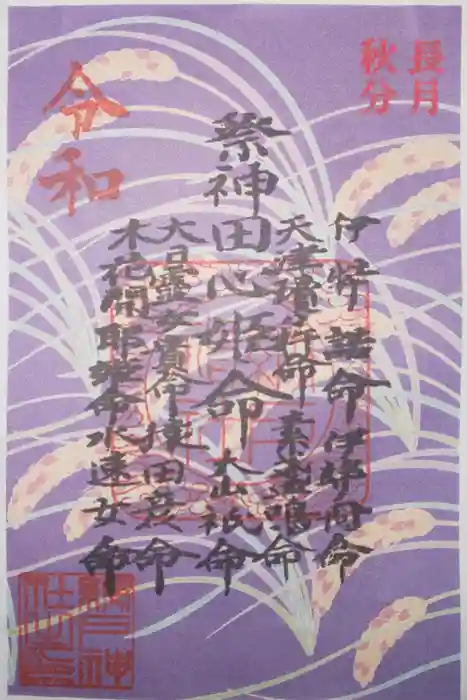 長月
秋分
令和
伊弉諾命 伊弉冉命
天津彦火命 素盞嗚命
祭神 田心姫命 大山祇命
大日孁女貴命 猿田彦命
木花開耶姫命 水速女命